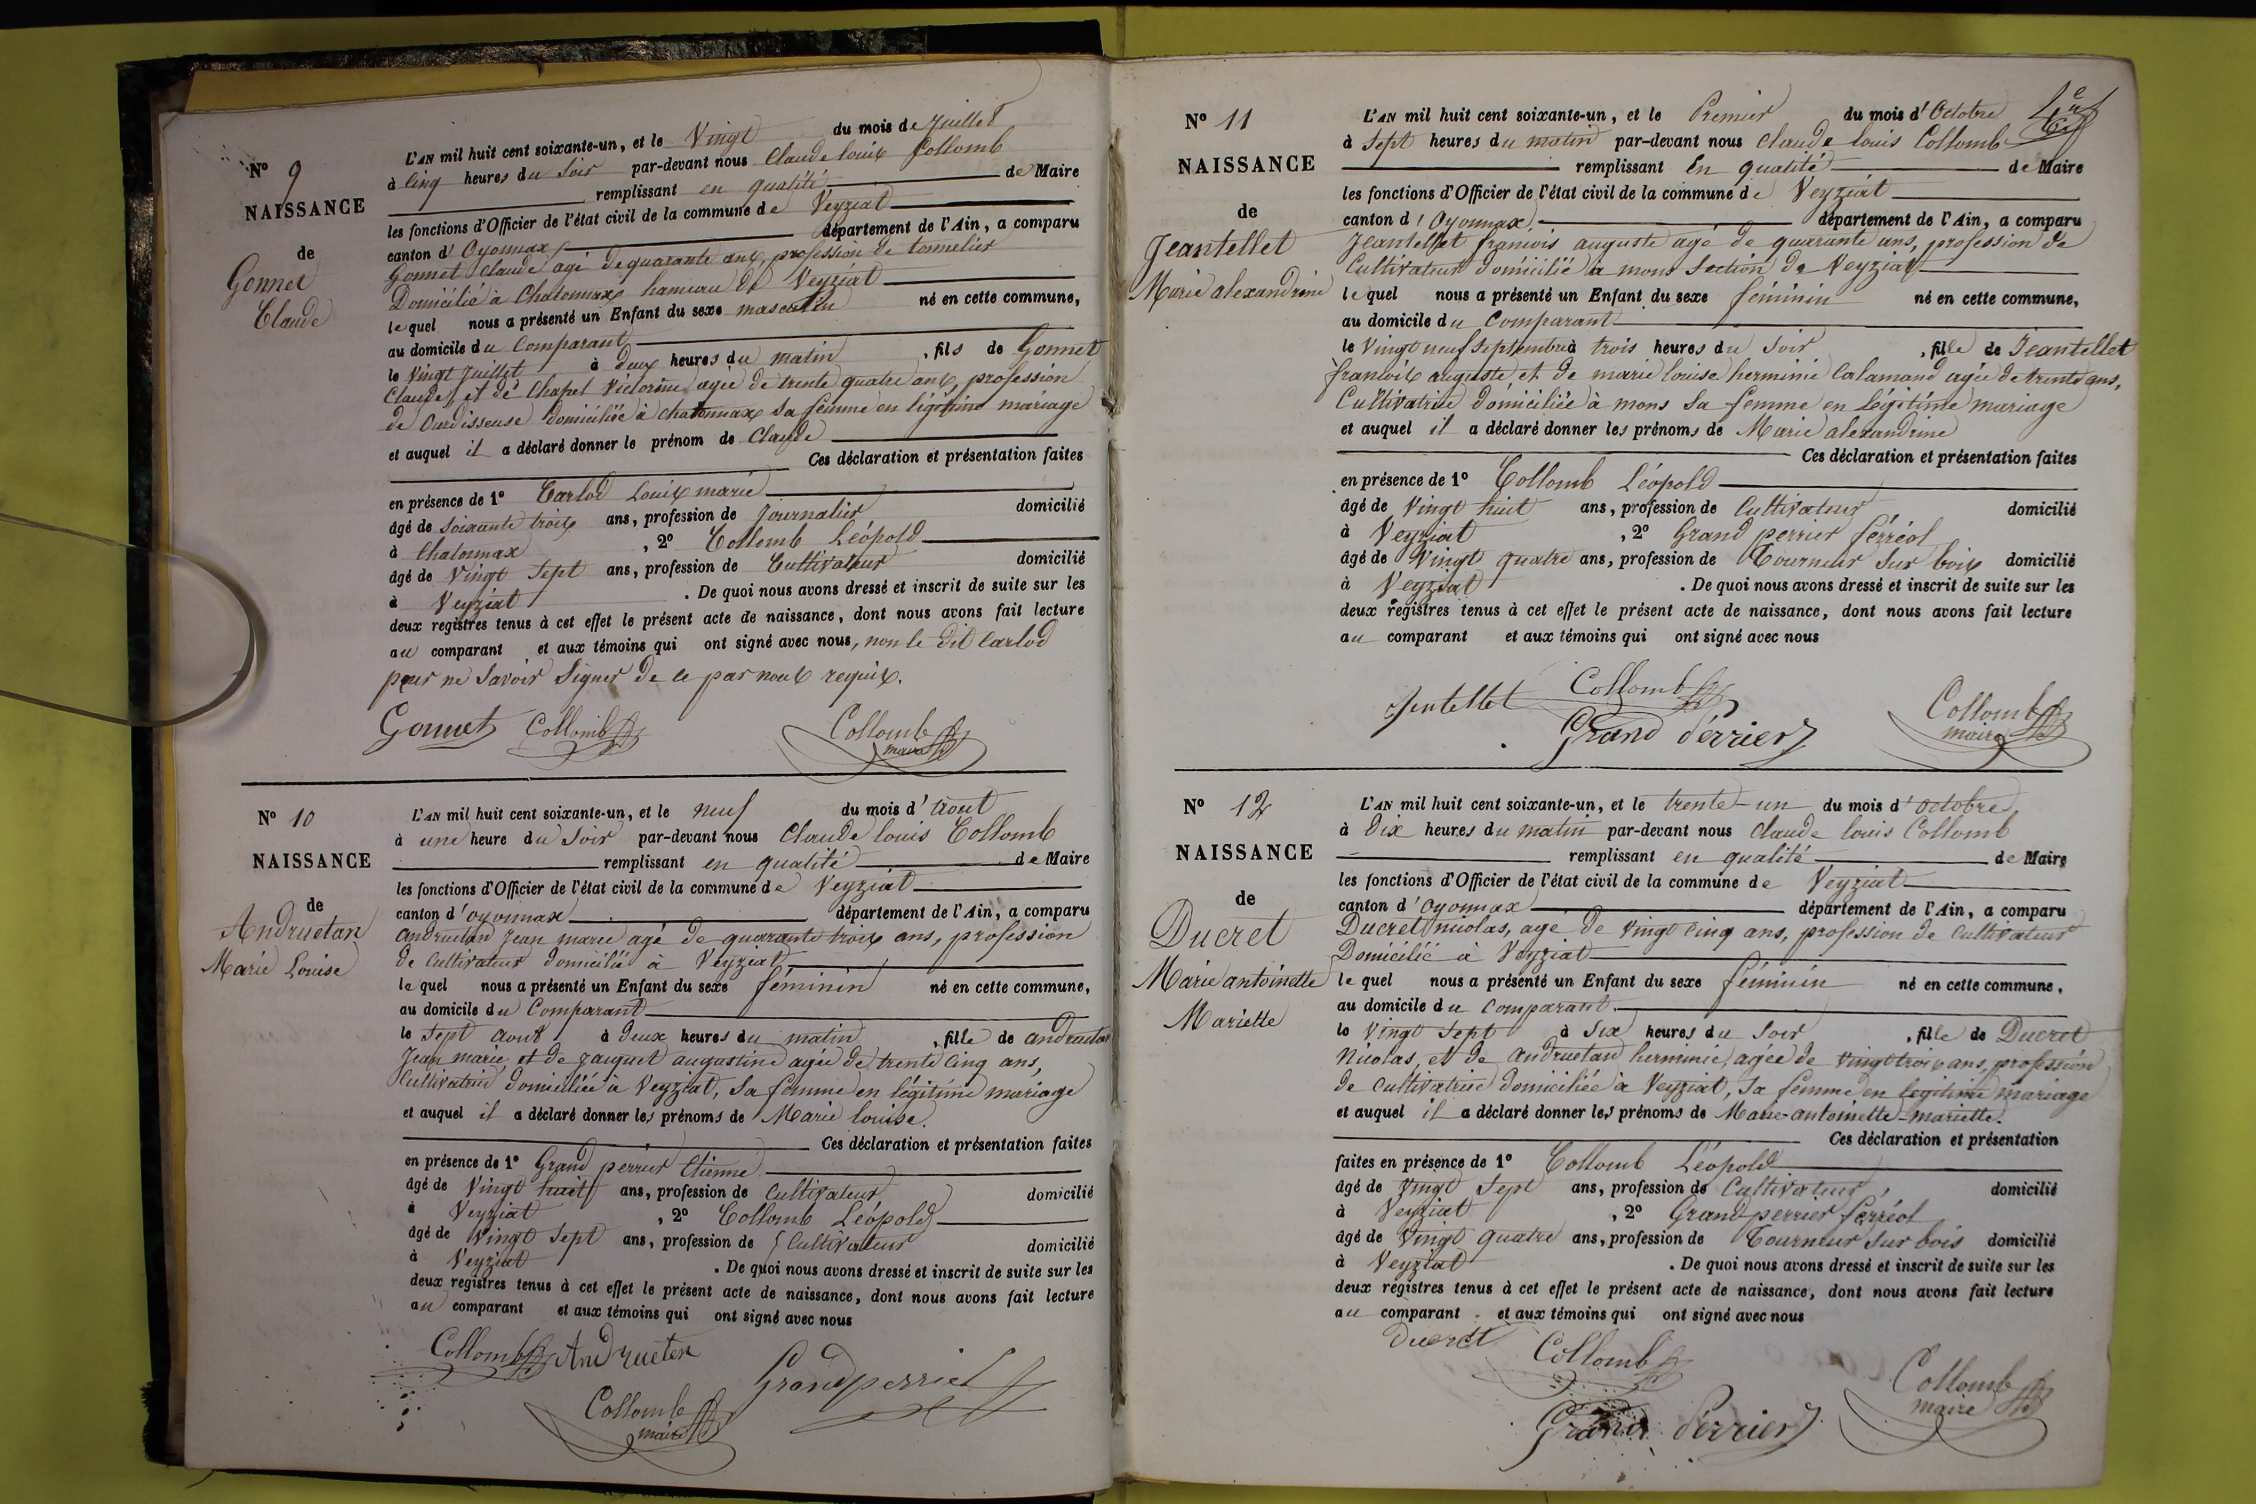 N° 9
NAISSANCE
de
Gonnet
Claude
L'AN mil huit cent soixante-un, et le Vingt du mois de Juillet
à Cinq heures du Soir par-devant nous Claude louis Collomb
remplissant en qualité de Maire
les fonctions d'Officier de l'état civil de la commune de Veyziat
canton d'Oyonnax département de l'Ain, a comparu
Gonnet Claude agé de quarante ans, profession de tonnelier
Domicilié à Chatonnax hameau de Veyziat
lequel nous a présenté un Enfant du sexe masculin né en cette commune,
au domicile du Comparant
le Vingt Juillet à deux heures du matin, fils de Gonnet
Claude, et de Chapel Victorine agée de trente quatre ans, profession
de Ourdisseuse domiciliée à chatonnax sa femme en légitime mariage
et auquel il a déclaré donner le prénom de Claude
Ces déclaration et présentation faites
en présence de 1° Carlod Louis marie
âgé de soixante trois ans, profession de Journalier domicilié
à Chatonnax, 2° Collomb Léopold
âgé de Vingt Sept ans, profession de Cultivateur domicilié
à Veyziat. De quoi nous avons dressé et inscrit de suite sur les
deux registres tenus à cet effet le présent acte de naissance, dont nous avons fait lecture
au comparant et aux témoins qui ont signé avec nous, non le dit Carlod
pour ne Savoir Signer de ce par nous requis.
Gonnet Collomb Collomb
maire
N° 10
NAISSANCE
de
Andruetan
Marie Louise
L'AN mil huit cent soixante-un, et le neuf du mois d'Aout
à une heure du Soir par-devant nous Claude louis Collomb
remplissant en qualité de Maire
les fonctions d'Officier de l'état civil de la commune de Veyziat
canton d'oyonnax département de l'Ain, a comparu
andruetan Jean marie agé de quarante trois ans, profession
de Cultivateur domicilié à Veyziat
lequel nous a présenté un Enfant du sexe féminin né en cette commune,
au domicile du Comparant
le Sept Aout à deux heures du matin, fille de andruetan
Jean marie, et de Jacquet augustine agée de trente cinq ans,
Cultivatrice domiciliée à Veyziat, Sa femme en légitime mariage
et auquel il a déclaré donner les prénoms de Marie louise.
Ces déclaration et présentation faites
en présence de 1° Grand perrier Etienne
âgé de Vingt huit ans, profession de Cultivateur domicilié
à Veyziat, 2° Collomb Léopold
âgé de Vingt Sept ans, profession de Cultivateur domicilié
à Veyziat. De quoi nous avons dressé et inscrit de suite sur les
deux registres tenus à cet effet le présent acte de naissance, dont nous avons fait lecture
au comparant et aux témoins qui ont signé avec nous
Collomb Andrueten Grandperrier
Collomb
maire
N° 11
NAISSANCE
de
Jeantellet
Marie alexandrine
L'AN mil huit cent soixante-un, et le Premier du mois d'Octobre
à Sept heures du matin par-devant nous Claude louis Collomb
remplissant En qualité de Maire
les fonctions d'Officier de l'état civil de la commune de Veyziat
canton d'Oyonnax département de l'Ain, a comparu
Jeantellet francois auguste agé de quarante ans, profession de
Cultivateur domicilié à mons section de Veyziat
lequel nous a présenté un Enfant du sexe féminin né en cette commune,
au domicile du Comparant
le Vingt neuf Septembre à trois heures du Soir, fille de Jeantellet
francois auguste et de marie louise herminie Calamand agée de trente ans,
Cultivatrice domiciliée à mons Sa femme en légitime mariage
et auquel il a déclaré donner les prénoms de Marie alexandrine
Ces déclaration et présentation faites
en présence de 1° Collomb Léopold
âgé de Vingt huit ans, profession de Cultivateur domicilié
à Veyziat, 2° Grand perrier férréol
âgé de Vingt quatre ans, profession de Tourneur sur bois domicilié
à Veyziat. De quoi nous avons dressé et inscrit de suite sur les
deux registres tenus à cet effet le présent acte de naissance, dont nous avons fait lecture
au comparant et aux témoins qui ont signé avec nous
Jentellet Collomb Collomb
Grand Périer maire
N° 12
NAISSANCE
de
Ducret
Marie antoinette
Mariette
L'AN mil huit cent soixante-un, et le trente-un du mois d'octobre
à Dix heures du matin par-devant nous Claude louis Collomb
remplissant en qualité de Maire
les fonctions d'Officier de l'état civil de la commune de Veyziat
canton d'oyonnax département de l'Ain, a comparu
Ducret nicolas, agé de vingt cinq ans, profession de Cultivateur
Domicilié à Veyziat
lequel nous a présenté un Enfant du sexe féminin né en cette commune,
au domicile du comparant
le Vingt Sept à Six heures du Soir, fille de Ducret
Nicolas, et de andruetan herminie, agée de vingt trois ans, profession
de cultivatrice domiciliée à Veyziat, sa femme en légitime mariage
et auquel il a déclaré donner les prénoms de Marie-antoinette-mariette.
Ces déclaration et présentation
faites en présence de 1° Collomb Léopold
âgé de vingt Sept ans, profession de Cultivateur, domicilié
à Veyziat, 2° Grand perrier ferréol
âgé de vingt quatre ans, profession de Tourneur sur bois domicilié
à Veyziat. De quoi nous avons dressé et inscrit de suite sur les
deux registres tenus à cet effet le présent acte de naissance, dont nous avons fait lecture
au comparant et aux témoins qui ont signé avec nous
ducret Collomb Collomb
Grand Périer maire